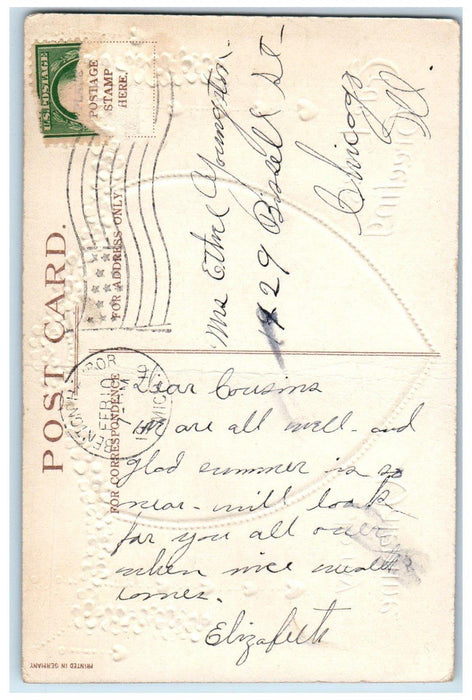 U.S. POSTAGE
POSTAGE
STAMP
HERE.
POST CARD.
FOR ADDRESS ONLY
FOR CORRESPONDENCE
BENTON HARBOR
FEB 10
MICH.
Mrs Ethel Youngston
1429 Bissell St
Chicago
Ill.
Dear Cousins
we are all well - and
glad summer is so
near - will look
for you all over
when nice weather
comes.
Elizabeth
PRINTED IN GERMANY